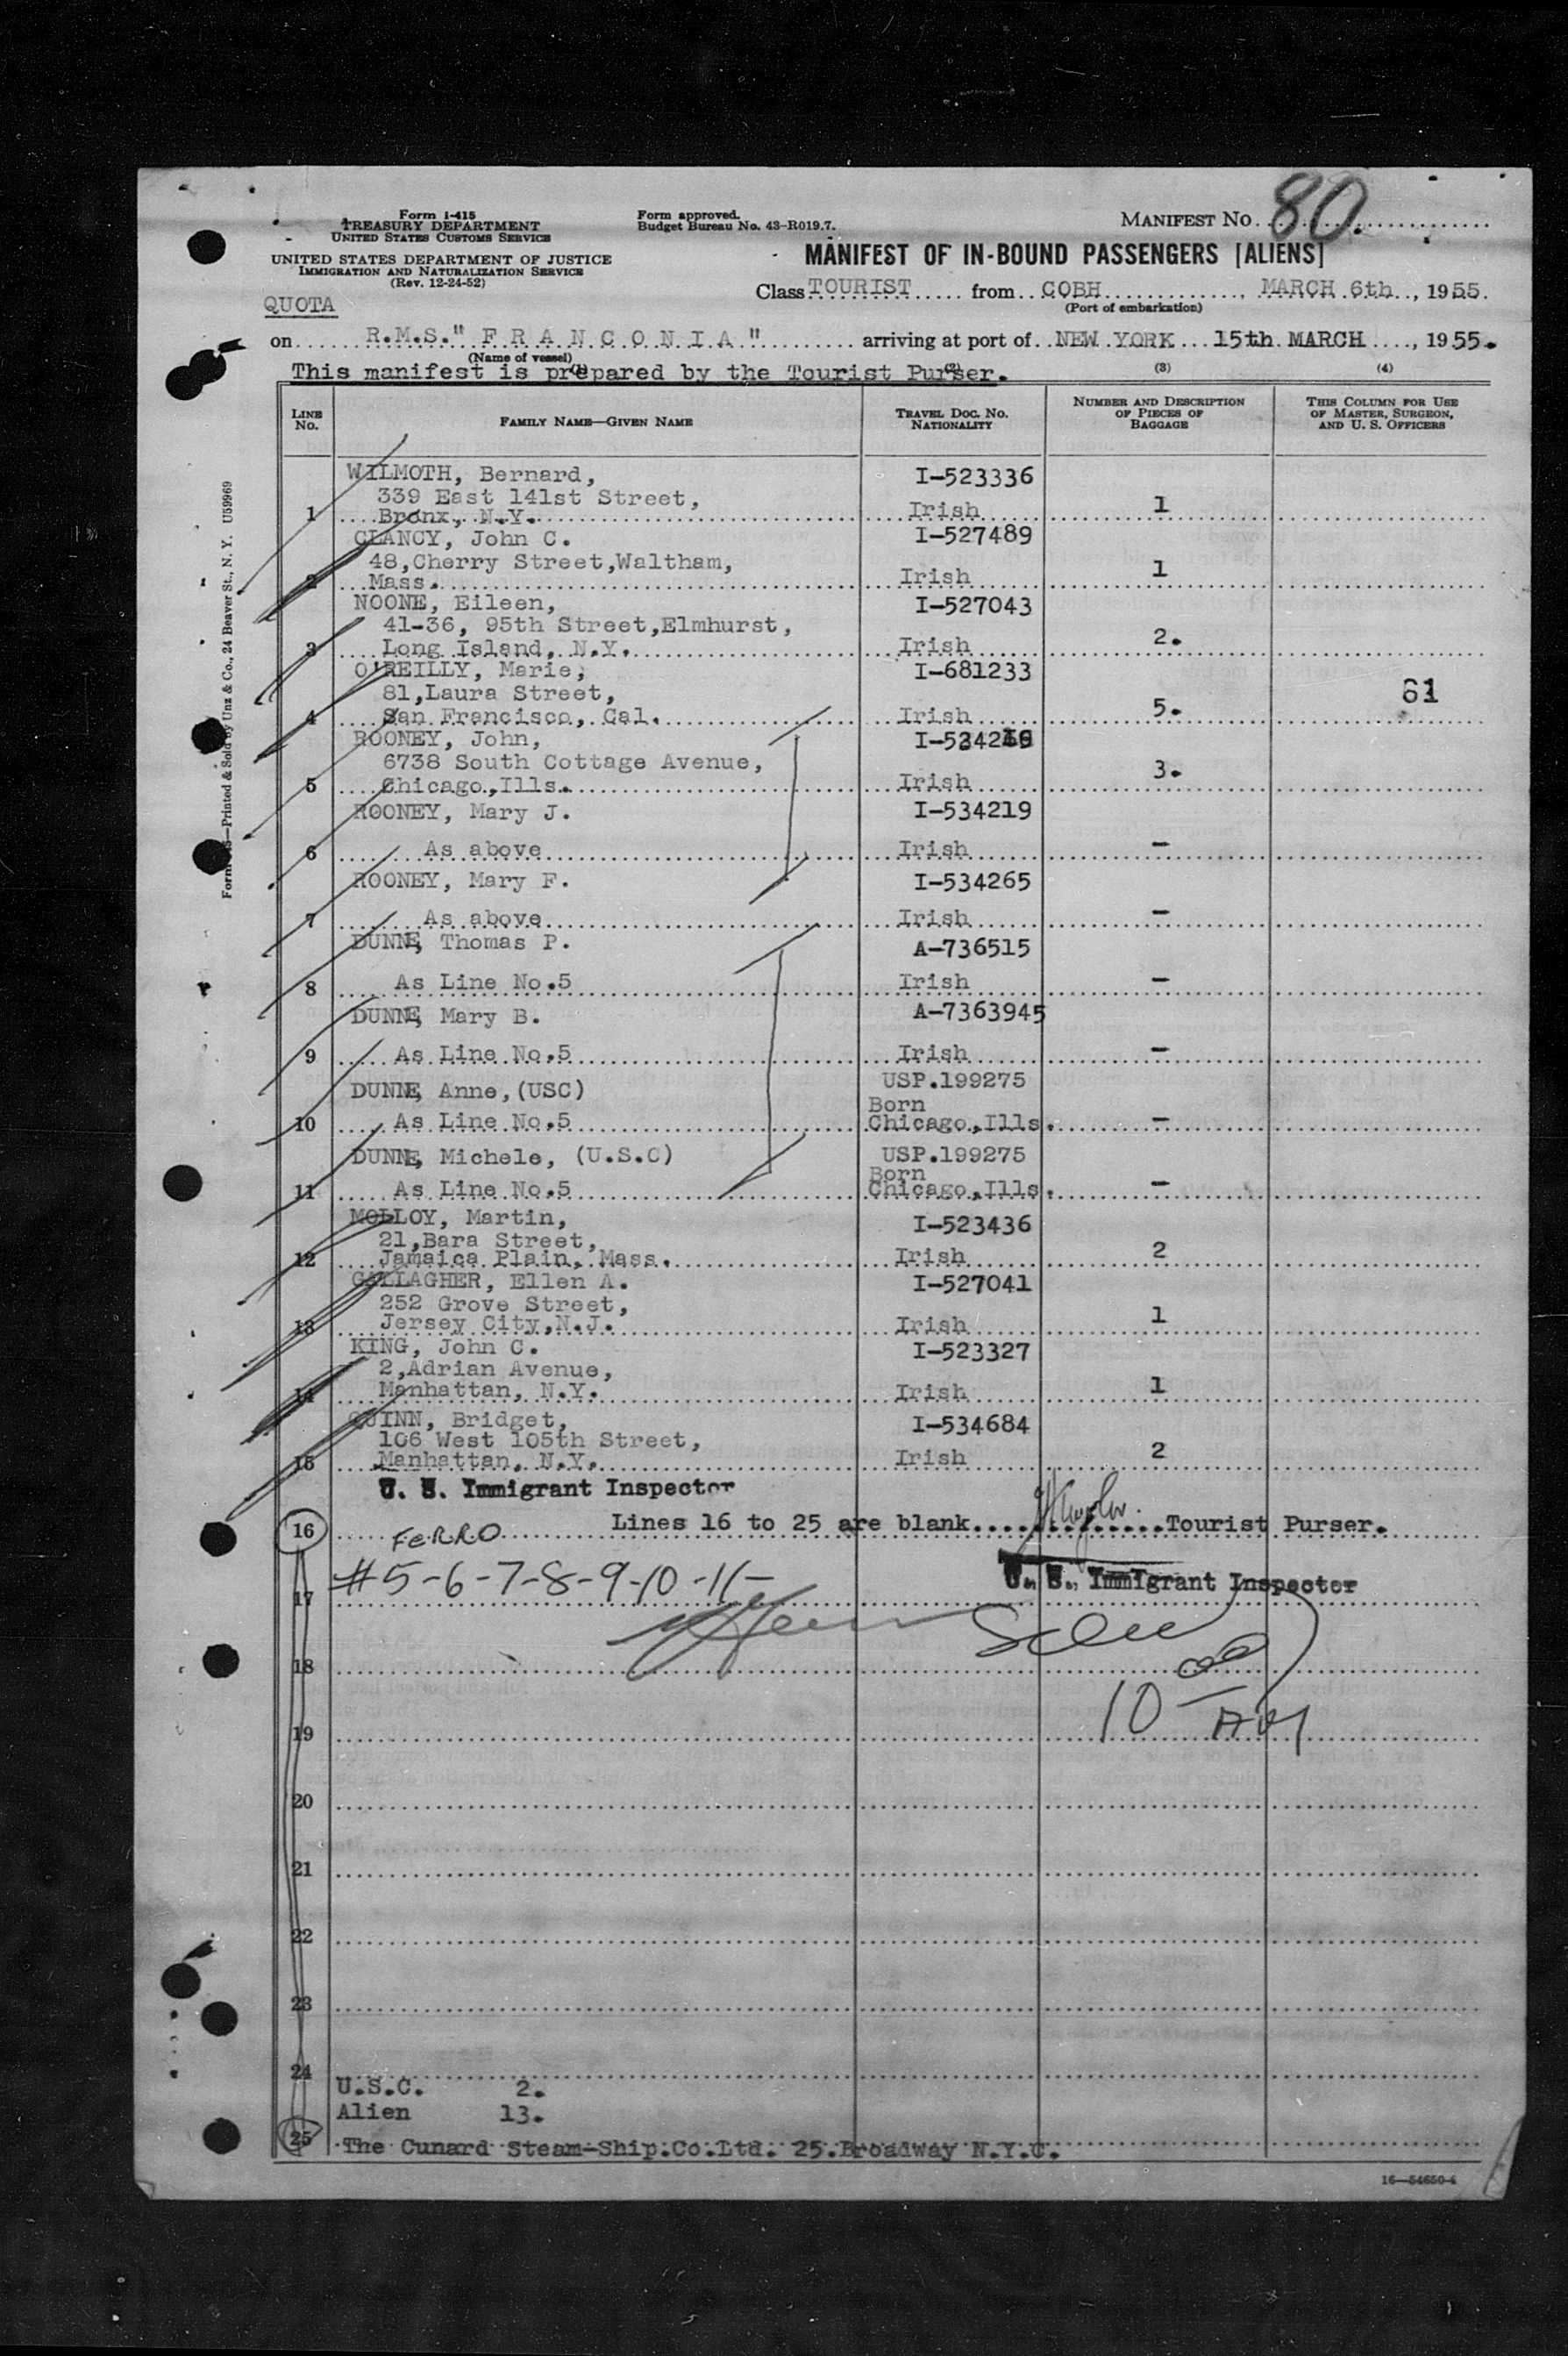 Form I-415
TREASURY DEPARTMENT
UNITED STATES CUSTOMS SERVICE
UNITED STATES DEPARTMENT OF JUSTICE
IMMIGRATION AND NATURALIZATION SERVICE
(Rev. 12-24-52)
Form approved.
Budget Bureau No. 43-R019.7.
MANIFEST NO. 80.
MANIFEST OF IN-BOUND PASSENGERS [ALIENS]
QUOTA
Class TOURIST from COBH, MARCH 6th, 1955.
(Port of embarkation)
on R.M.S." F R A N C O N I A " arriving at port of NEW YORK 15th MARCH, 1955.
(Name of vessel)
This manifest is prepared by the Tourist Purser.
(1) (2) (3) (4)
LINE NO. FAMILY NAME—GIVEN NAME TRAVEL DOC. NO. NATIONALITY NUMBER AND DESCRIPTION OF PIECES OF BAGGAGE THIS COLUMN FOR USE OF MASTER, SURGEON, AND U. S. OFFICERS
WILMOTH, Bernard, I-523336
339 East 141st Street,
1 Bronx, N.Y. Irish 1
CLANCY, John C. I-527489
48,Cherry Street,Waltham,
2 Mass. Irish 1
NOONE, Eileen, I-527043
41-36, 95th Street,Elmhurst,
3 Long Island, N.Y. Irish 2.
O'REILLY, Marie, I-681233
81,Laura Street, 61
4 San Francisco, Cal. Irish 5.
ROONEY, John,
6738 South Cottage Avenue,
5 Chicago,Ills. Irish 3.
ROONEY, Mary J. I-534219
6 As above Irish -
ROONEY, Mary F. I-534265
7 As above Irish -
DUNNE, Thomas P. A-736515
8 As Line No.5 Irish -
DUNNE, Mary B. A-7363945
9 As Line No.5 Irish -
DUNNE, Anne,(USC) USP.199275
Born
10 As Line No.5 Chicago,Ills. -
DUNNE, Michele, (U.S.C) USP.199275
Born
11 As Line No.5 Chicago,Ills. -
MOLLOY, Martin, I-523436
21,Bara Street,
12 Jamaica Plain, Mass. Irish 2
GALLAGHER, Ellen A. I-527041
252 Grove Street,
13 Jersey City,N.J. Irish 1
KING, John C. I-523327
2,Adrian Avenue,
14 Manhattan, N.Y. Irish 1
QUINN, Bridget, I-534684
106 West 105th Street,
15 Manhattan, N.Y. Irish 2
U. S. Immigrant Inspector
16 FERRO Lines 16 to 25 are blank. Tourist Purser.
#5-6-7-8-9-10-11-
U. S. Immigrant Inspector
17
18
10 00 AM
19
20
21
22
23
24
U.S.C. 2.
Alien 13.
25 The Cunard Steam-Ship.Co.Ltd. 25.Broadway N.Y.C.
16—54650-4
Printed & Sold by Unz & Co., 24 Beaver St., N. Y. U59969